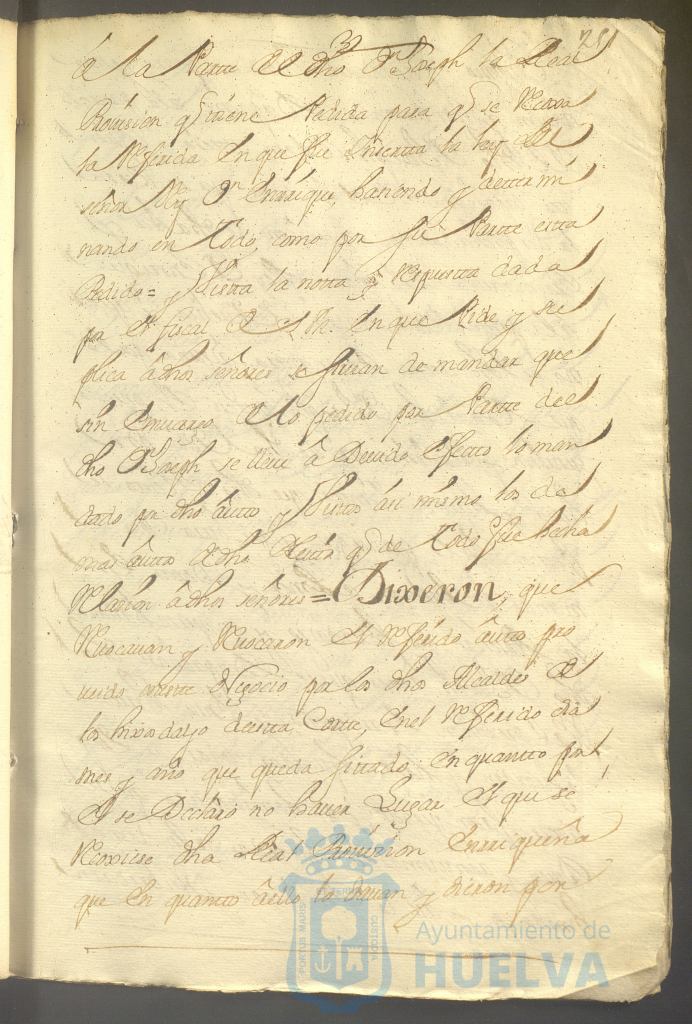 28
à la Parte del dho Dn Joseph la Real
Provision q. tiene Pedida para q. se Recoxa
la Referida en que fue inserta la ley del
señor Rey Dn Enrrique, haciendo y dettermi
nando en todo, como por su Partte esta
Pedido= y Vista la notta y Respuesta dada
por el fiscal de S.M. en que Pide y su
plica à dhos señores se sirvan de mandar que
sin embargo de lo pedido por Partte del
dho Dn Joseph se lleve à Devido efecto lo man
dado por dho àuto y Vistos àsi mismo los de
mas àutos de dho Pleito q. de todo fue hecha
Relacion à dhos señores= Dixeron, que
Revocavan y Revocaron el Referido àuto pro
veido en este Negocio por los dhos Alcaldes de
los hixosdalgo de esta Corte, en el Referido dia
mes y año que queda sittado; en quantto por
el se Declaro no haver Lugar el que se
Recoxiese dha Real Provision Enrriqueña
que en quantto à ello la davan y dieron por
Ayuntamiento de
HUELVA
PORTUS MARIS
ET TERRE
CUSTODIA